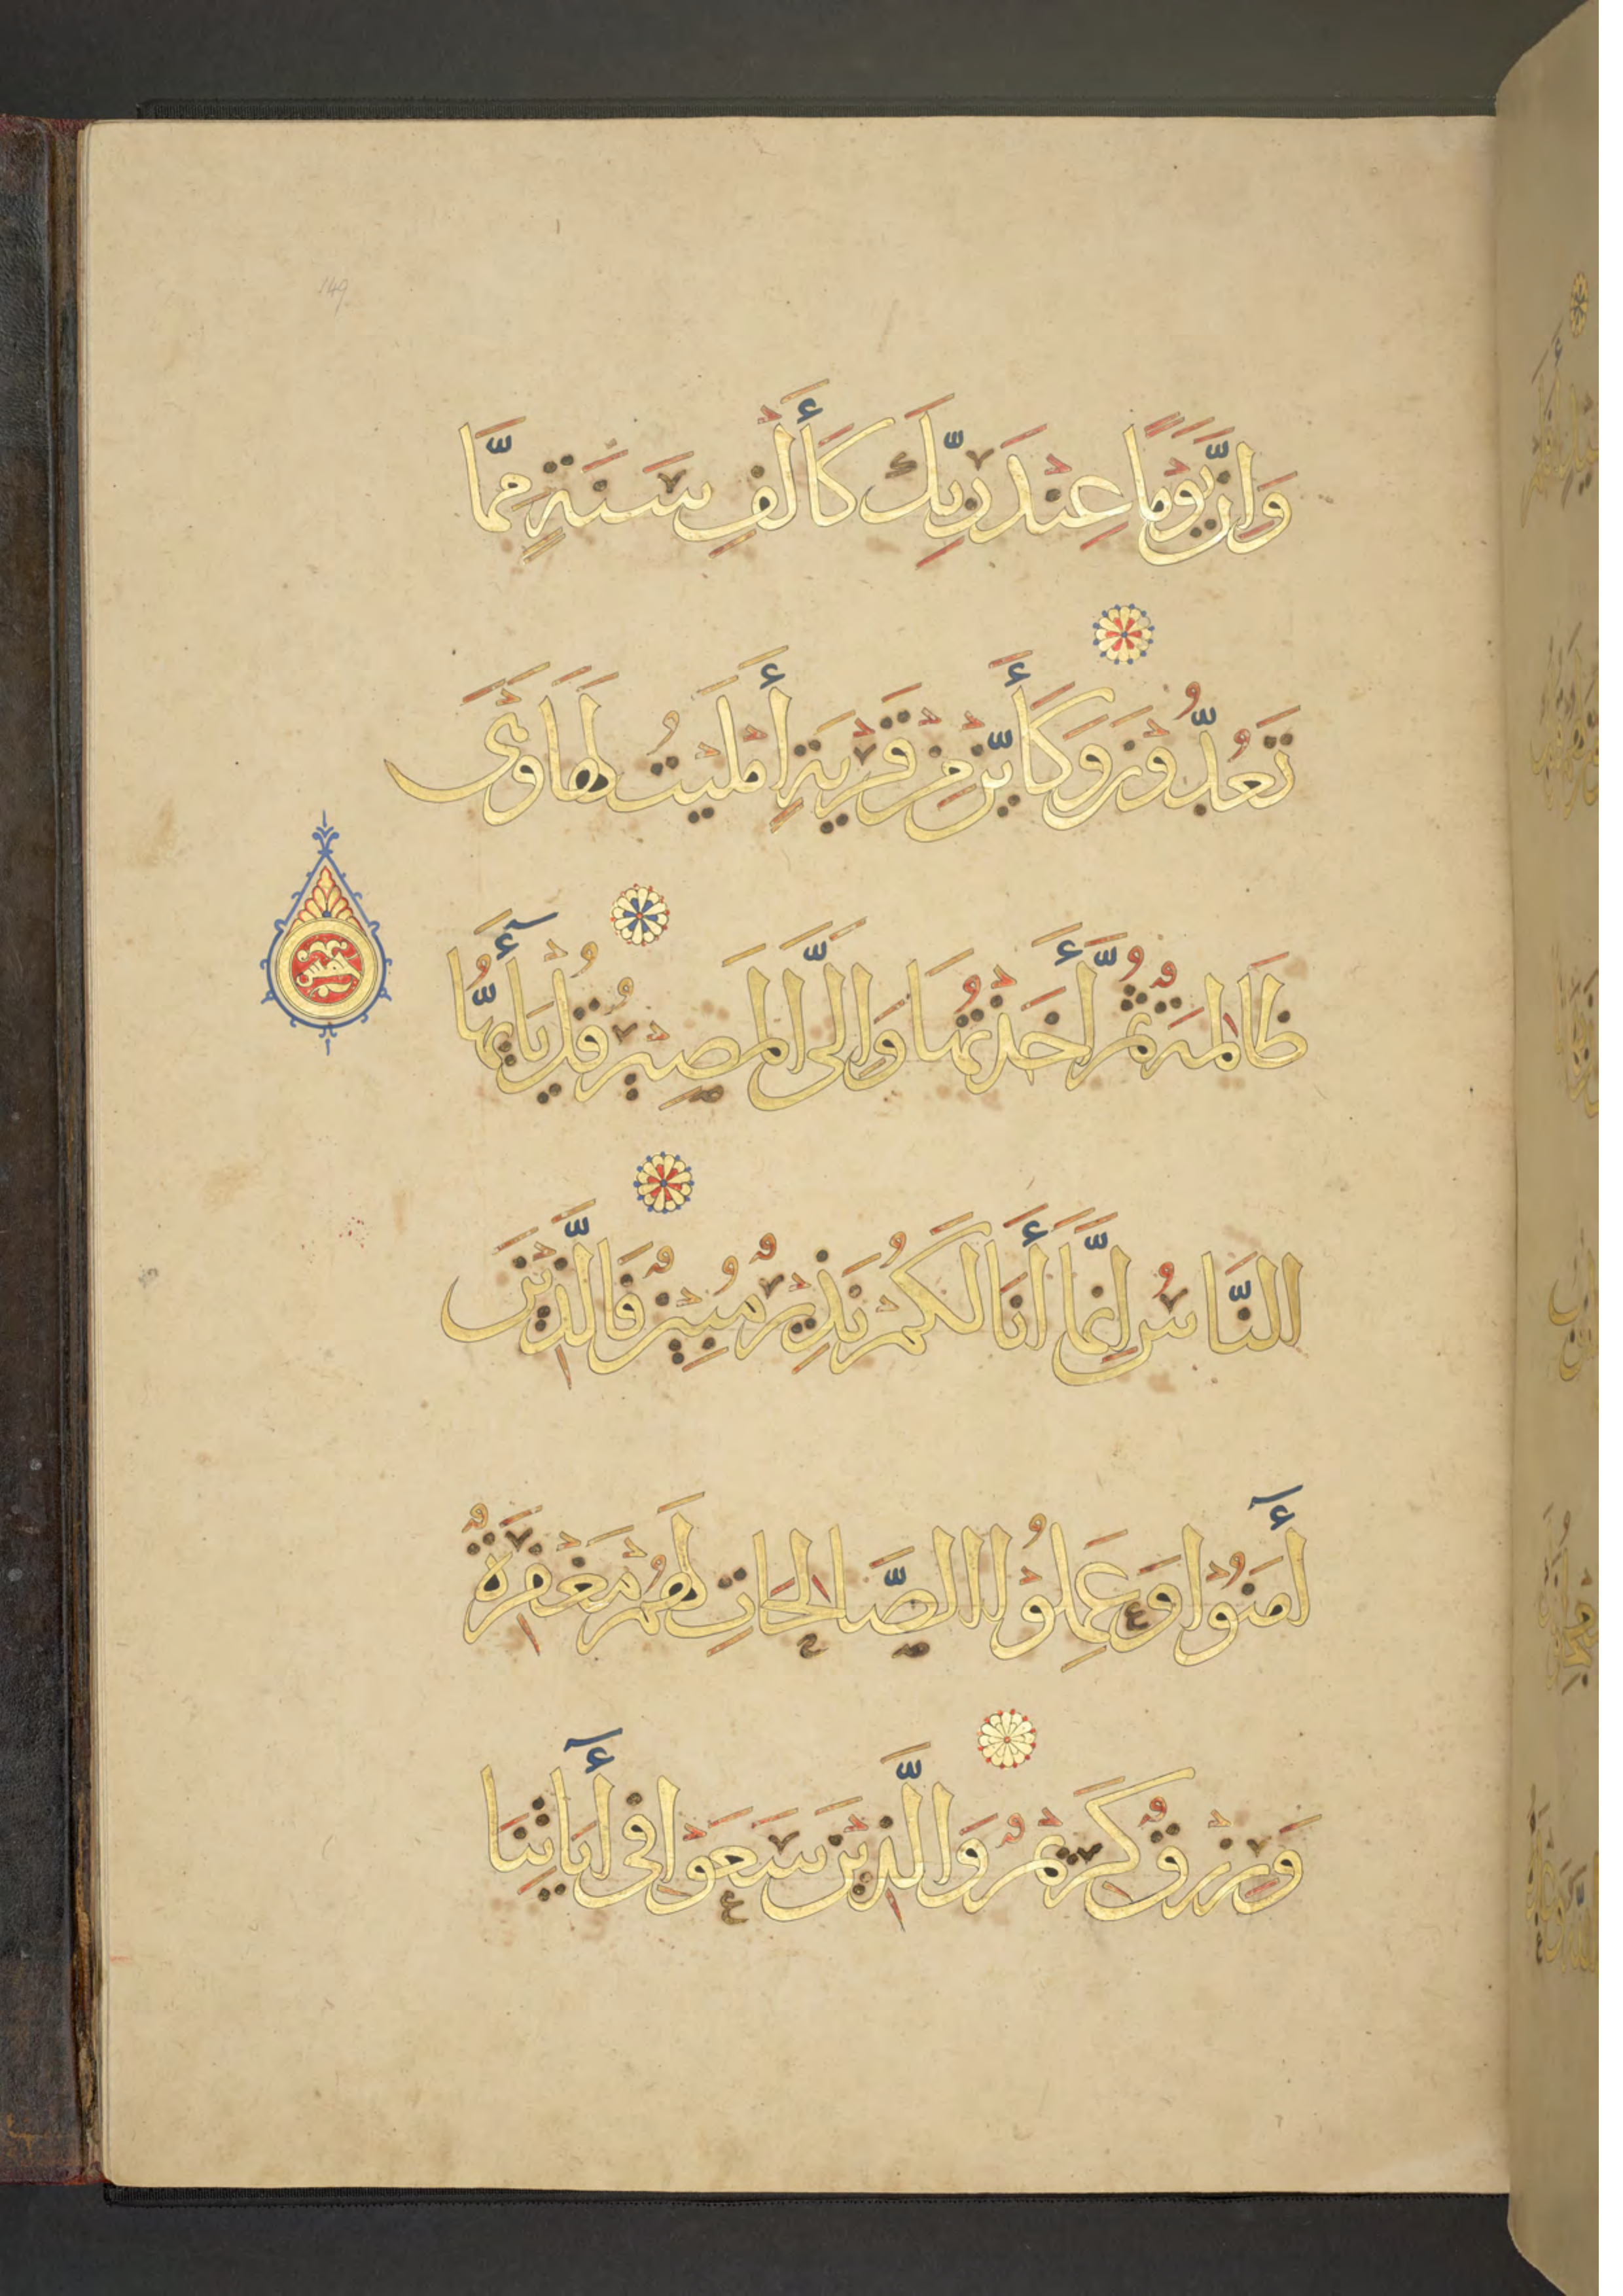 وَإِنَّ يَوْمًا عِنْدَ رَبِّكَ كَأَلْفِ سَنَةٍ مِمَّا
تَعُدُّونَ وَكَأَيِّنْ مِنْ قَرْيَةٍ أَمْلَيْتُ لَهَا وَهْىَ
ظَالِمَةٌ ثُمَّ أَخَذْتُهَا وَإِلَىَّ الْمَصِيرُ قُلْ يَآأَيُّهَا
النَّاسُ إِنَّمَا أَنَا لَكُمْ نَذِيرٌ مُبِينٌ فَالَّذِينَ
أَمَنُوا وَعَمِلُوا الصَّالِحَاتِ لَهُمْ مَغْفِرَةٌ
وَرِزْقٌ كَرِيمٌ وَالَّذِينَ سَعَوْا فِى أَيَاتِنَا
خمس
149